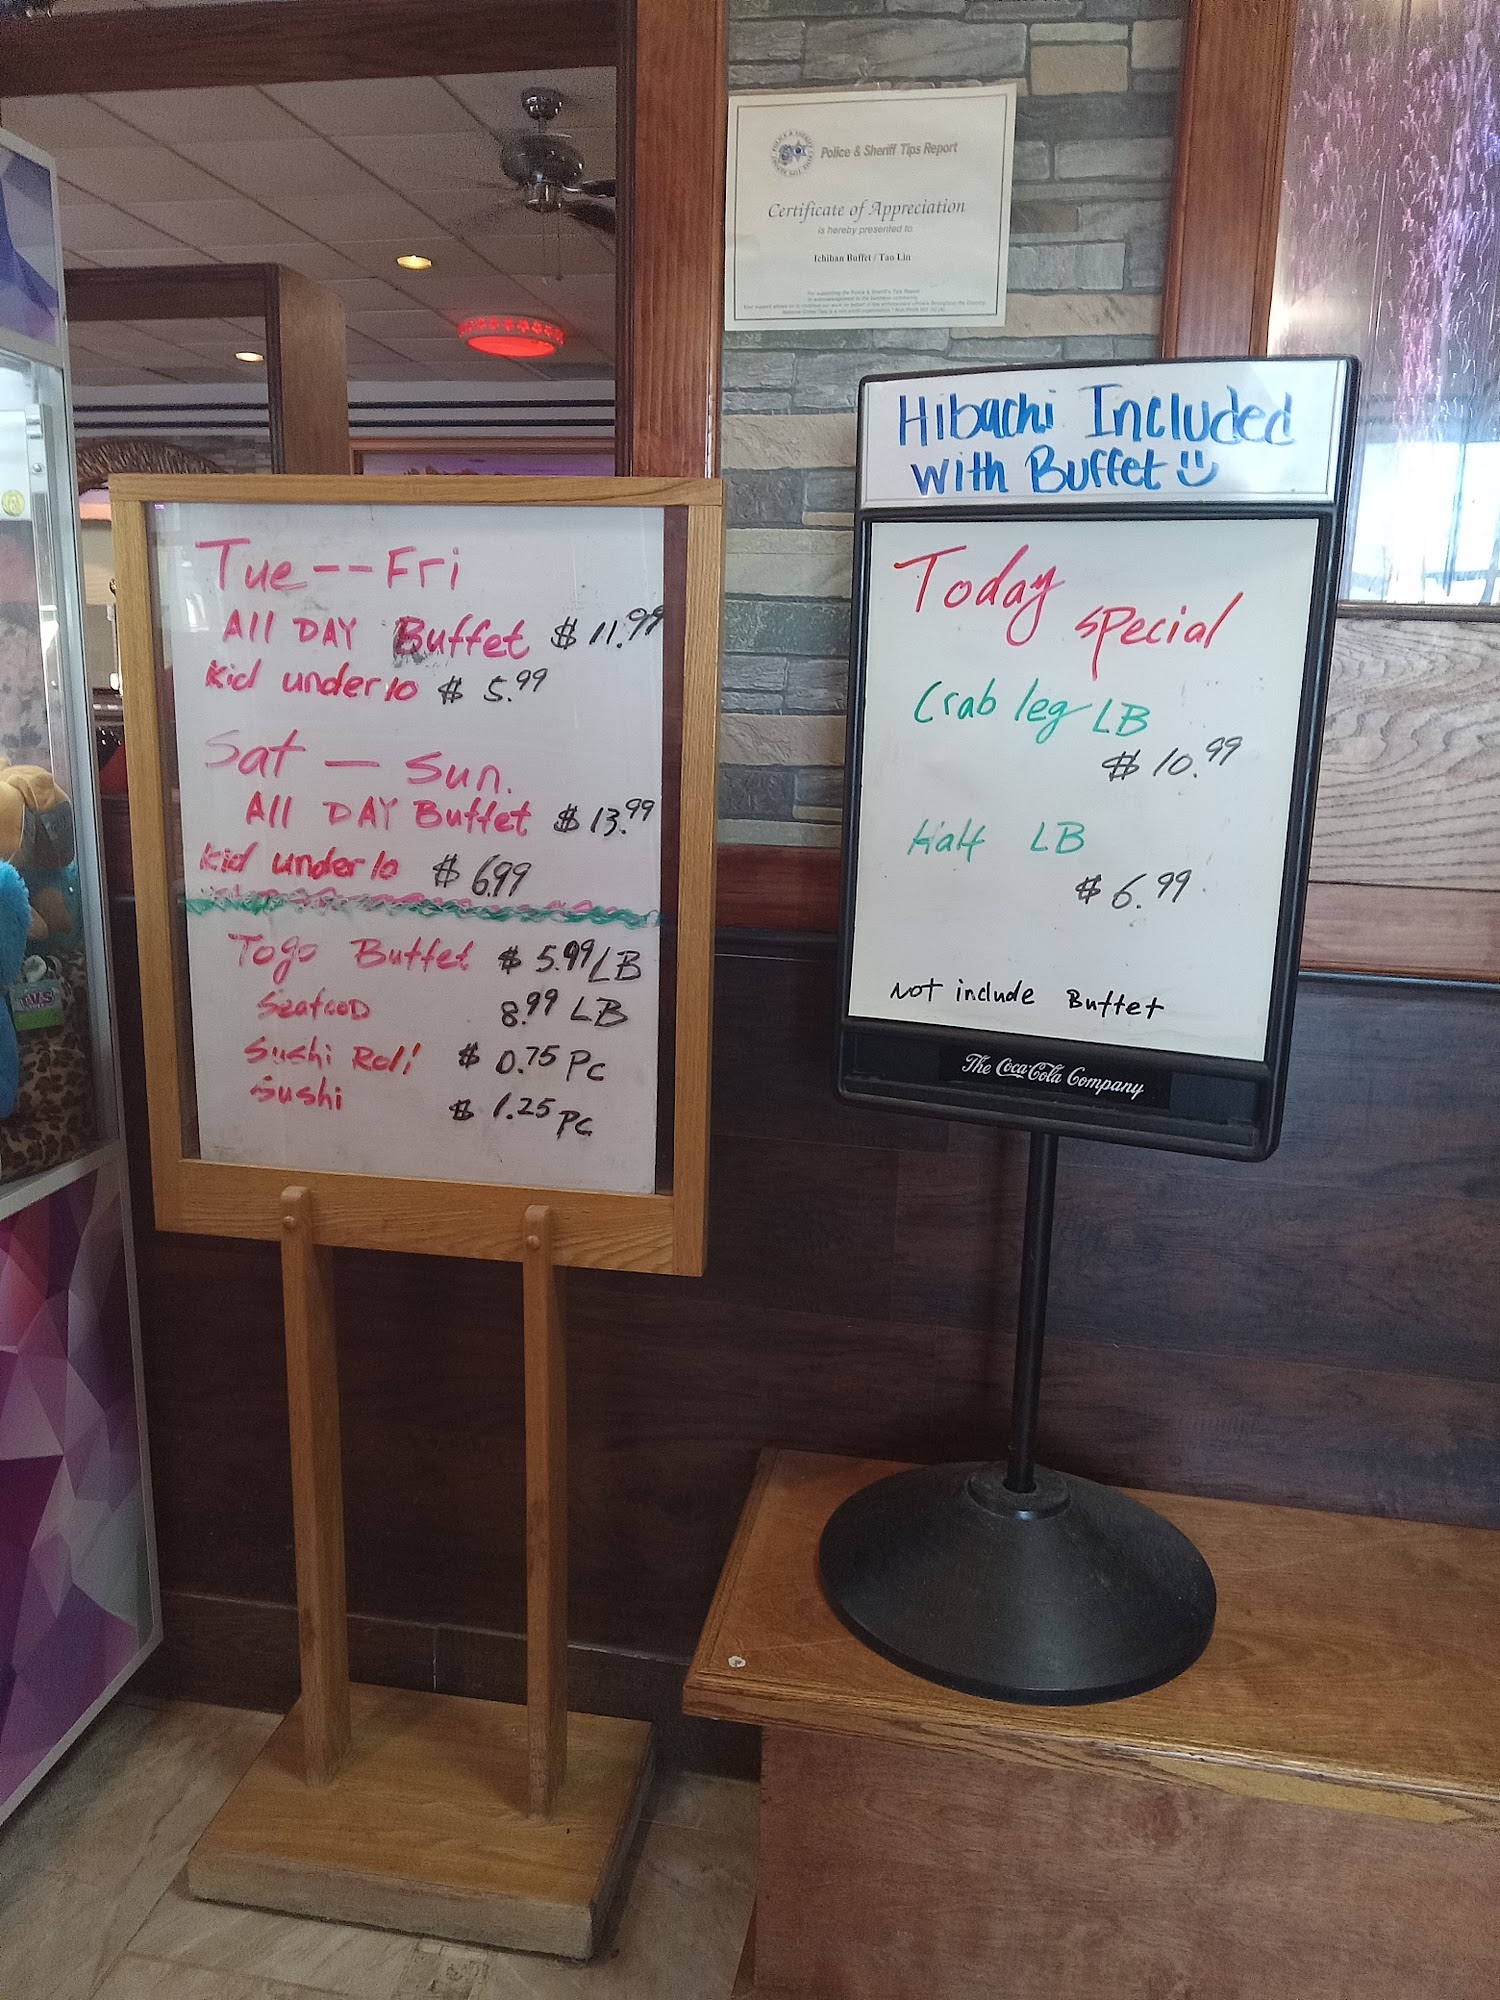 Police & Sheriff Tips Report
Certificate of Appreciation
is hereby presented to
Ichiban Buffet / Tao Lin
Tue -- Fri
All DAY Buffet $ 11.99
Kid under 10 $ 5.99
Sat — Sun.
All DAY Buffet $ 13.99
Kid under 10 $ 6.99
Togo Buffet $ 5.99 LB
Seafood 8.99 LB
Sushi Roll $ 0.75 Pc
Sushi $ 1.25 Pc
Hibachi Included
with Buffet
Today special
Crab leg LB
$ 10.99
Half LB
$ 6.99
Not include Buffet
The Coca-Cola Company